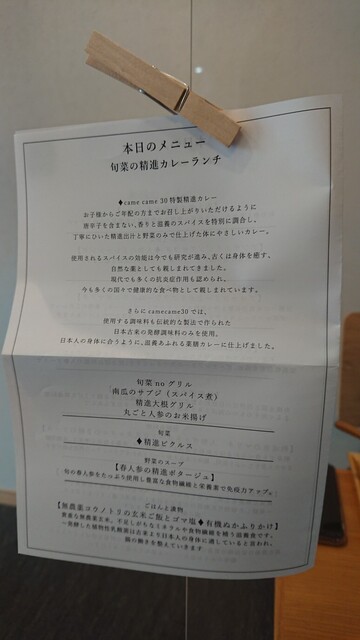 本日のメニュー
旬菜の精進カレーランチ
♦came came 30 特製精進カレー
お子様からご年配の方までお召し上がりいただけるように
唐辛子を含まない、香りと滋養のスパイスを特別に調合し、
丁寧にひいた精進出汁と野菜のみで仕上げた体にやさしいカレー。
使用されるスパイスの効能は今でも研究が進み、古くは身体を癒す、
自然な薬としても親しまれてきました。
現代でも多くの抗炎症作用も認められ、
今も多くの国々で健康的な食べ物として親しまれています。
さらにcamecame30では、
使用する調味料も伝統的な製法で作られた
日本古来の発酵調味料のみを使用。
日本人の身体に合うように、滋養あふれる薬膳カレーに仕上げました。
旬菜 no グリル
南瓜のサブジ（スパイス煮）
精進大根グリル
丸ごと人参のお米揚げ
旬菜
♦精進ピクルス
野菜のスープ
【春人参の精進ポタージュ】
旬の春人参をたっぷり使用し豊富な食物繊維と栄養素で免疫力アップ。
ごはんと漬物
【無農薬コウノトリの玄米ご飯とゴマ塩♦有機ぬかふりかけ】
貴重な無農薬玄米。不足しがちなミネラルや食物繊維を補う滋養食です。
～発酵した植物性乳酸菌は古来より日本人の身体に適していると言われ、
腸の働きを整えていきます